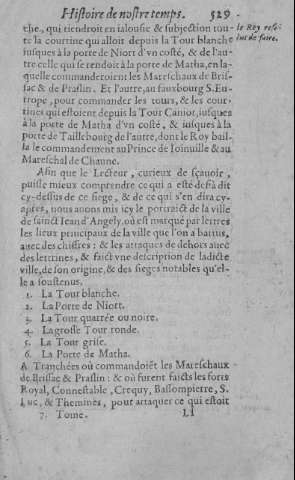 Histoire de nostre temps. 529
che, qui tiendroit en ialousie & subjection tou-
te la courtine qui alloit depuis la Tour blanche
iusques à la porte de Niort d'vn costé, & de l'au-
tre celle qui se rendoit à la porte de Matha, en la-
quelle commanderoient les Mareschaux de Bris-
sac & de Praslin. Et l'autre, au fauxbourg S. Eu-
trope, pour commander les tours, & les cour-
tines qui estoient depuis la Tour Canior, iusques
à la porte de Matha d'vn costé, & iusques à la
porte de Taillebourg de l'autre, dont le Roy bail-
la le commandement au Prince de Ioinuille & au
Mareschal de Chaune.
le Roy reso-
lut de faire.
Afin que le Lecteur, curieux de sçauoir,
puisse mieux comprendre ce qui a esté desià dit
cy-dessus de ce siege, & de ce qui s'en dira cy-
apres, nous auons mis icy le portraict de la ville
de sainct Iean d'Angely, où est marqué par lettres
les lieux principaux de la ville que l'on a battus,
auec des chiffres: & les attaques de dehors auec
des lettrines, & faict vne description de ladicte
ville, de son origine, & des sieges notables qu'el-
le a soustenus.
1. La Tour blanche.
2. La Porte de Niort.
3. La Tour quarrée ou noire.
4. La grosse Tour ronde.
5. La Tour grise.
6. La Porte de Matha.
A Tranchées où commandoiēt les Mareschaux
de Brissac & Praslin: & où furent faicts les forts
Royal, Connestable, Crequy, Bassompierre, S.
Luc, & Themines, pour attaquer ce qui estoit
7. Tome. Ll